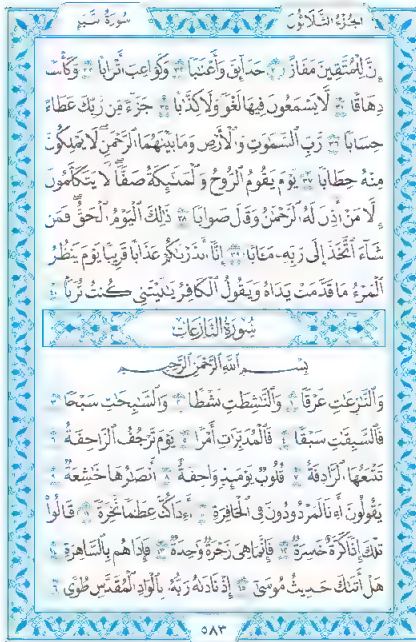 الجزء الثلاثون سورة النبإ
إِنَّ لِلْمُتَّقِينَ مَفَازًا ۝٣١ حَدَائِقَ وَأَعْنَابًا ۝٣٢ وَكَوَاعِبَ أَتْرَابًا ۝٣٣ وَكَأْسًا
دِهَاقًا ۝٣٤ لَّا يَسْمَعُونَ فِيهَا لَغْوًا وَلَا كِذَّابًا ۝٣٥ جَزَاءً مِّن رَّبِّكَ عَطَاءً
حِسَابًا ۝٣٦ رَّبِّ السَّمَٰوَٰتِ وَالْأَرْضِ وَمَا بَيْنَهُمَا الرَّحْمَٰنِ لَا يَمْلِكُونَ
مِنْهُ خِطَابًا ۝٣٧ يَوْمَ يَقُومُ الرُّوحُ وَالْمَلَٰئِكَةُ صَفًّا لَّا يَتَكَلَّمُونَ
إِلَّا مَنْ أَذِنَ لَهُ الرَّحْمَٰنُ وَقَالَ صَوَابًا ۝٣٨ ذَٰلِكَ الْيَوْمُ الْحَقُّ فَمَن
شَاءَ اتَّخَذَ إِلَىٰ رَبِّهِ مَـَٔابًا ۝٣٩ إِنَّا أَنذَرْنَٰكُمْ عَذَابًا قَرِيبًا يَوْمَ يَنظُرُ
الْمَرْءُ مَا قَدَّمَتْ يَدَاهُ وَيَقُولُ الْكَافِرُ يَٰلَيْتَنِي كُنتُ تُرَابًا ۝٤٠
سُورَةُ النَّازِعَاتِ
بِسْمِ اللَّهِ الرَّحْمَٰنِ الرَّحِيمِ
وَالنَّٰزِعَٰتِ غَرْقًا ۝١ وَالنَّٰشِطَٰتِ نَشْطًا ۝٢ وَالسَّٰبِحَٰتِ سَبْحًا ۝٣
فَالسَّٰبِقَٰتِ سَبْقًا ۝٤ فَالْمُدَبِّرَٰتِ أَمْرًا ۝٥ يَوْمَ تَرْجُفُ الرَّاجِفَةُ ۝٦
تَتْبَعُهَا الرَّادِفَةُ ۝٧ قُلُوبٌ يَوْمَئِذٍ وَاجِفَةٌ ۝٨ أَبْصَٰرُهَا خَٰشِعَةٌ ۝٩
يَقُولُونَ أَءِنَّا لَمَرْدُودُونَ فِي الْحَافِرَةِ ۝١٠ أَءِذَا كُنَّا عِظَٰمًا نَّخِرَةً ۝١١ قَالُوا
تِلْكَ إِذًا كَرَّةٌ خَاسِرَةٌ ۝١٢ فَإِنَّمَا هِيَ زَجْرَةٌ وَٰحِدَةٌ ۝١٣ فَإِذَا هُم بِالسَّاهِرَةِ ۝١٤
هَلْ أَتَىٰكَ حَدِيثُ مُوسَىٰ ۝١٥ إِذْ نَادَىٰهُ رَبُّهُ بِالْوَادِ الْمُقَدَّسِ طُوًى ۝١٦
٥٨٣